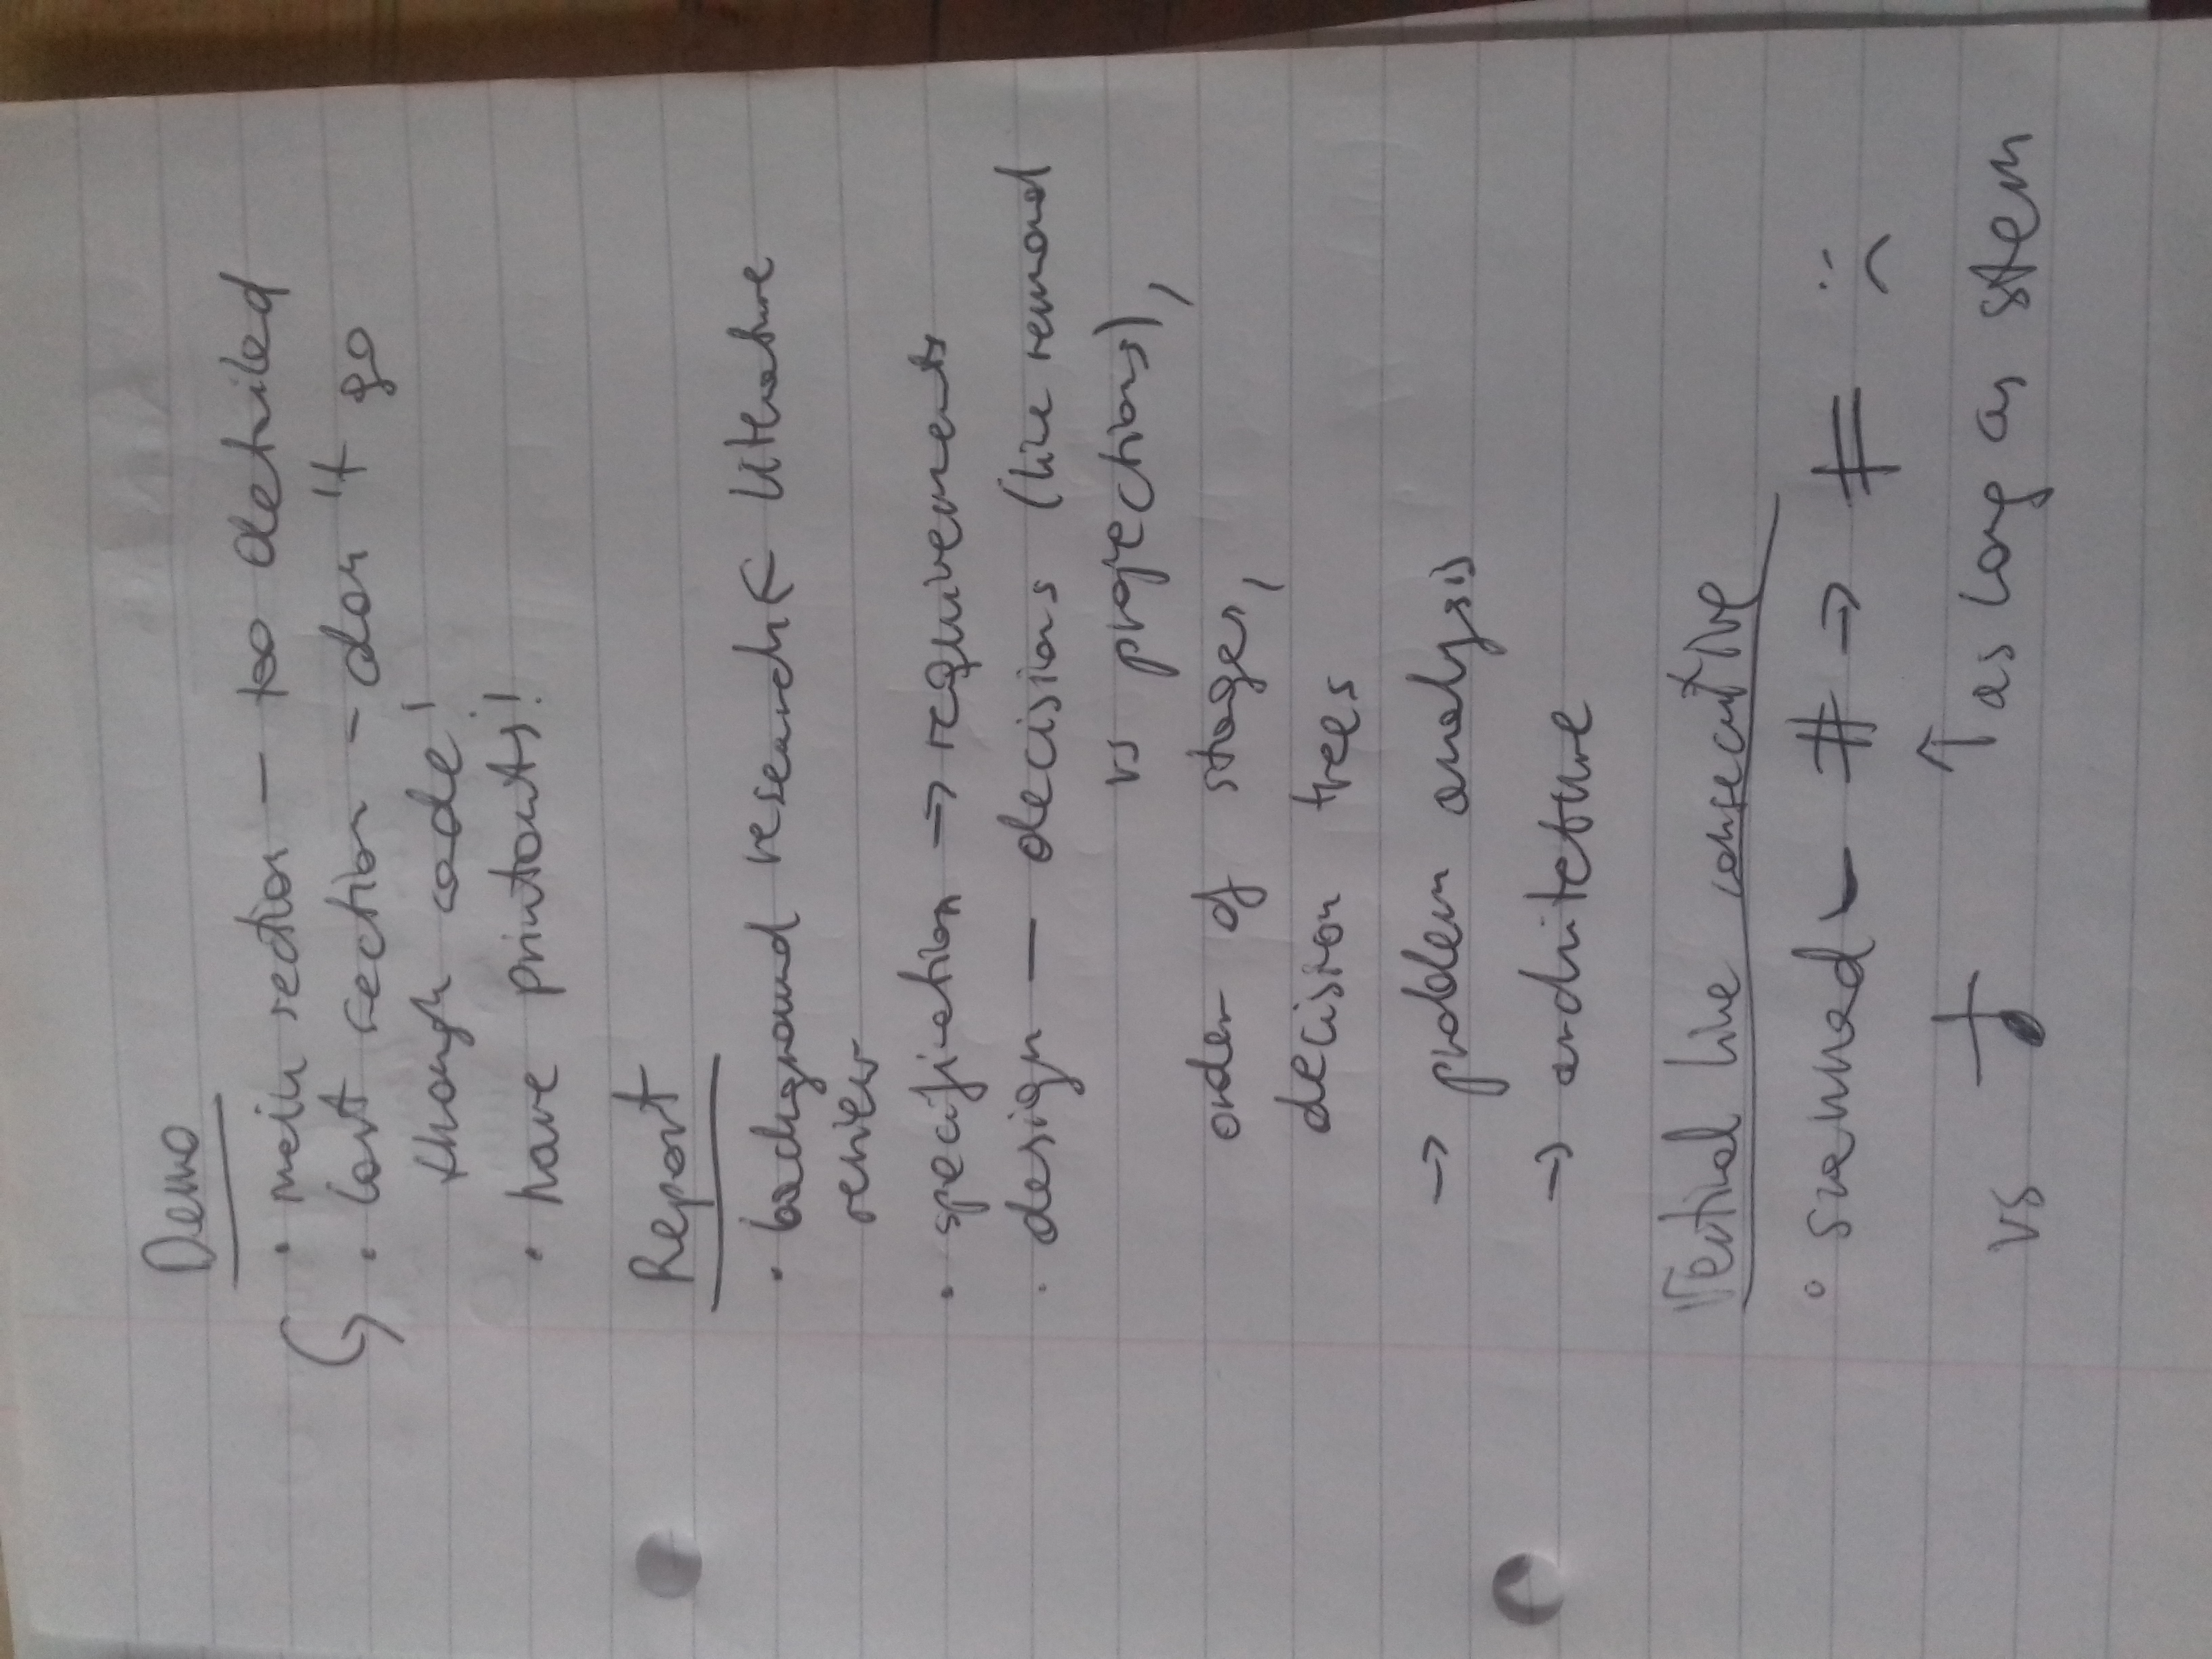 Demo
• main section — too detailed
• last section - don't go
though code!
• have printouts!
Report
• background research ← literature
review
• specification → requirements
• design — decisions (line removal
vs projections),
order of stages,
decision trees
→ problem analysis
→ architeture
Vertical line consecutive
• scanned - # → ≠ :(
vs
↑ as long as stem